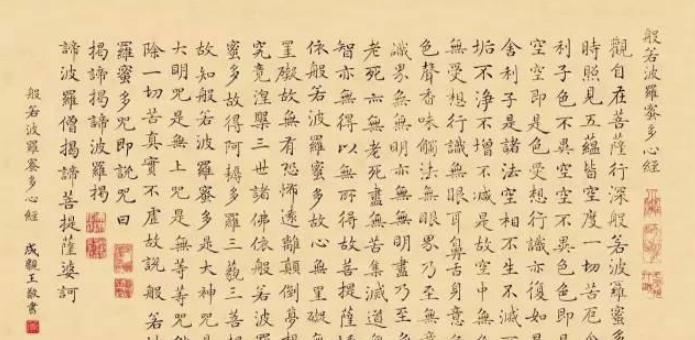 般若波羅蜜多心經
觀自在菩薩行深般若波羅蜜多
時照見五蘊皆空度一切苦厄舍
利子色不異空空不異色色即是
空空即是色受想行識亦復如是
舍利子是諸法空相不生不滅
垢不淨不增不減是故空中無
無受想行識無眼耳鼻舌身意
色聲香味觸法無眼界乃至無意
識界無無明亦無無明盡乃至
老死亦無老死盡無苦集滅道無
智亦無得以無所得故菩提薩埵
依般若波羅蜜多故心無罣礙
罣礙故無有恐怖遠離顛倒夢想
究竟涅槃三世諸佛依般若波羅
蜜多故得阿耨多羅三藐三菩提
故知般若波羅蜜多是大神咒是
大明咒是無上咒是無等等咒能
除一切苦真實不虛故說般若
羅蜜多咒即說咒曰
揭諦揭諦波羅揭
諦波羅僧揭諦菩提薩婆訶
般若波羅蜜多心經
成親王敬書